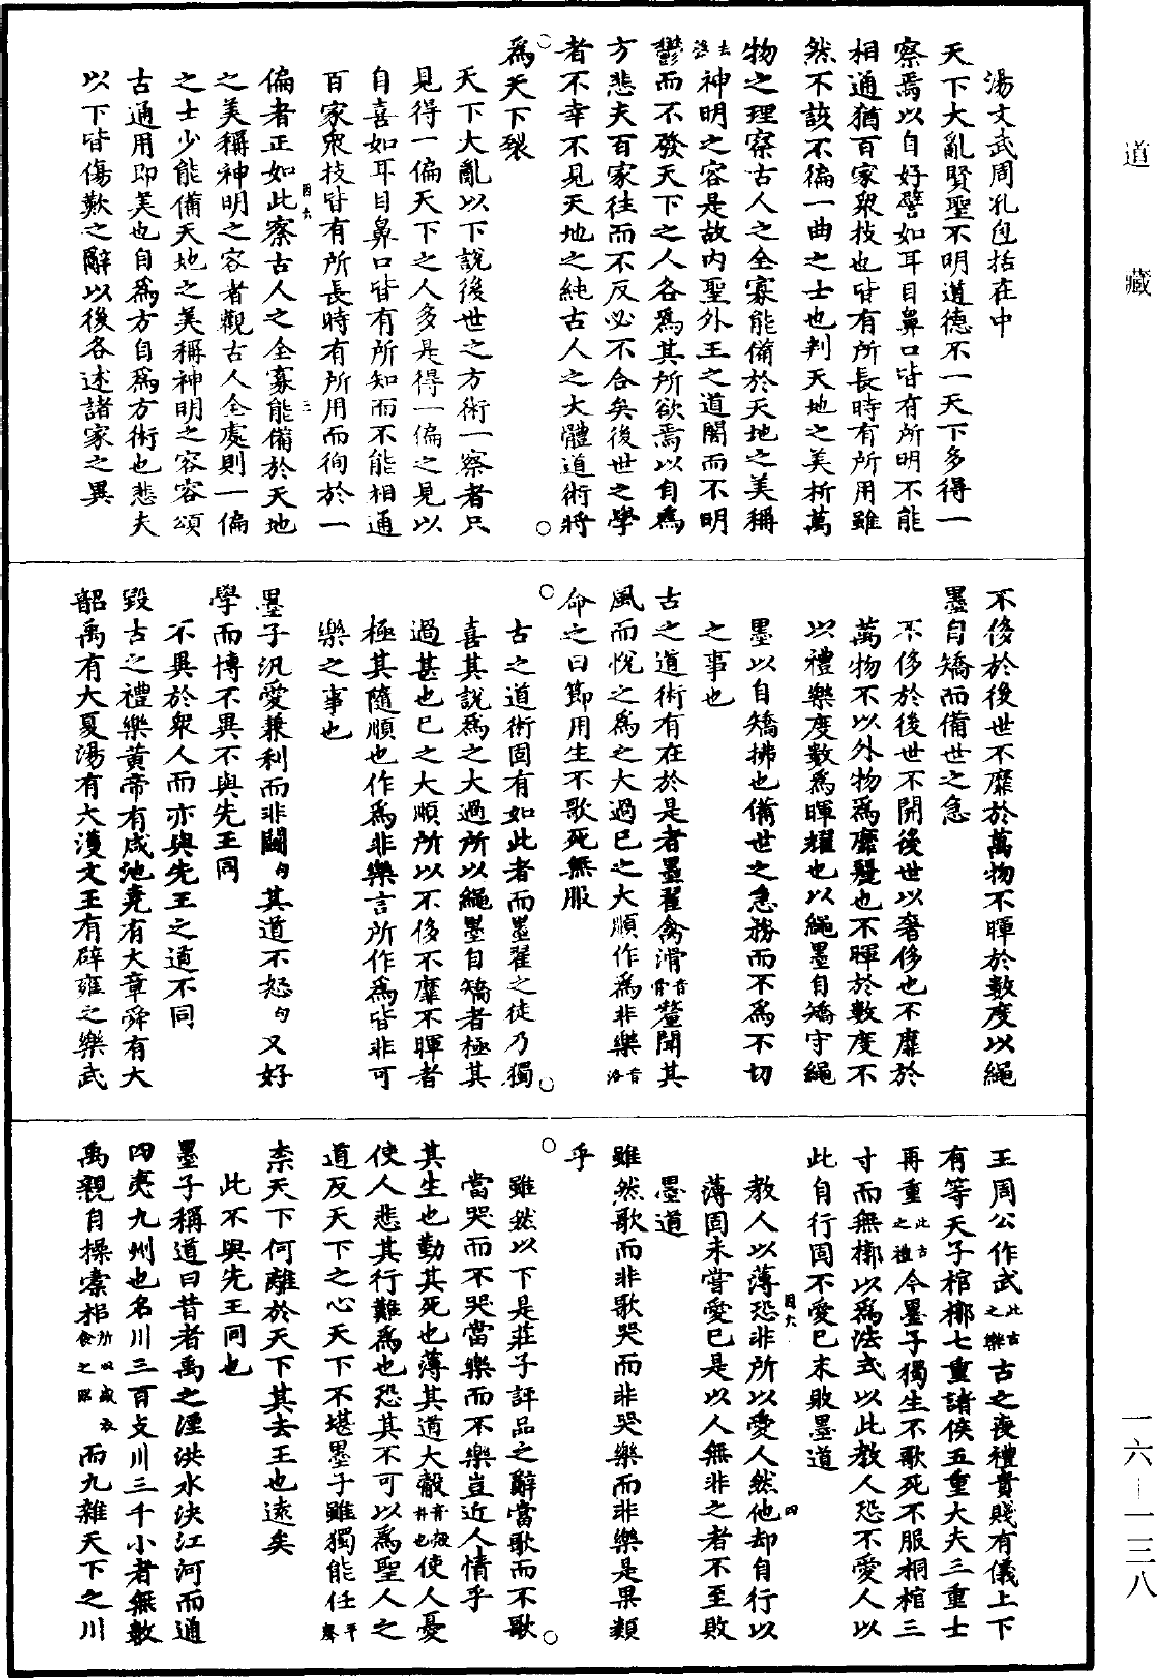 道藏
湯文武周孔包括在中
天下大亂賢聖不明道德不一天下多得一
察焉以自好譬如耳目鼻口皆有所明不能
相通猶百家衆技也皆有所長時有所用雖
然不該不徧一曲之士也判天地之美析萬
物之理察古人之全寡能備於天地之美稱
去聲神明之容是故內聖外王之道闇而不明
鬱而不發天下之人各爲其所欲焉以自爲
方悲夫百家往而不反必不合矣後世之學
者不幸不見天地之純古人之大體道術將
爲天下裂
天下大亂以下說後世之方術一察者只
見得一偏天下之人多是得一偏之見以
自喜如耳目鼻口皆有所知而不能相通
百家衆技皆有所長時有所用而徇於一
偏者正如此察古人之全寡能備於天地
之美稱神明之容者觀古人全處則一偏
之士少能備天地之美稱神明之容容頌
古通用即美也自爲方自爲方術也悲夫
以下皆傷歎之辭以後各述諸家之異
不侈於後世不靡於萬物不暉於數度以繩
墨自矯而備世之急
不侈於後世不開後世以奢侈也不靡於
萬物不以外物爲靡麗也不暉於數度不
以禮樂度數爲暉耀也以繩墨自矯守繩
墨以自矯拂也備世之急務而不爲不切
之事也
古之道術有在於是者墨翟禽滑音骨釐聞其
風而悅之爲之大過已之大順作爲非樂音洛
命之曰節用生不歌死無服
古之道術固有如此者而墨翟之徒乃獨
喜其說爲之大過所以繩墨自矯者極其
過甚也已之大順所以不侈不靡不暉者
極其隨順也作爲非樂言所作爲皆非可
樂之事也
墨子汎愛兼利而非鬭句其道不怒句又好
學而博不異不與先王同
不異於衆人而亦與先王之道不同
毀古之禮樂黃帝有咸池堯有大章舜有大
韶禹有大夏湯有大濩文王有辟雍之樂武
王周公作武此古之樂古之喪禮貴賤有儀上下
有等天子棺槨七重諸侯五重大夫三重士
再重此古之禮今墨子獨生不歌死不服桐棺三
寸而無槨以爲法式以此教人恐不愛人以
此自行固不愛已未敗墨道
教人以薄恐非所以愛人然他却自行以
薄固未嘗愛已是以人無非之者不至敗
墨道
雖然歌而非歌哭而非哭樂而非樂是果類
乎
雖然以下是莊子評品之辭當歌而不歌
當哭而不哭當樂而不樂豈近人情乎
其生也勤其死也薄其道大觳使人憂
使人悲其行難爲也恐其不可以爲聖人之
道反天下之心天下不堪墨子雖獨能任平聲
柰天下何離於天下其去王也遠矣
此不與先王同也
墨子稱道曰昔者禹之湮洪水決江河而通
四夷九州也名川三百支川三千小者無數
禹親自操橐耜而九雜天下之川
一六—一三八